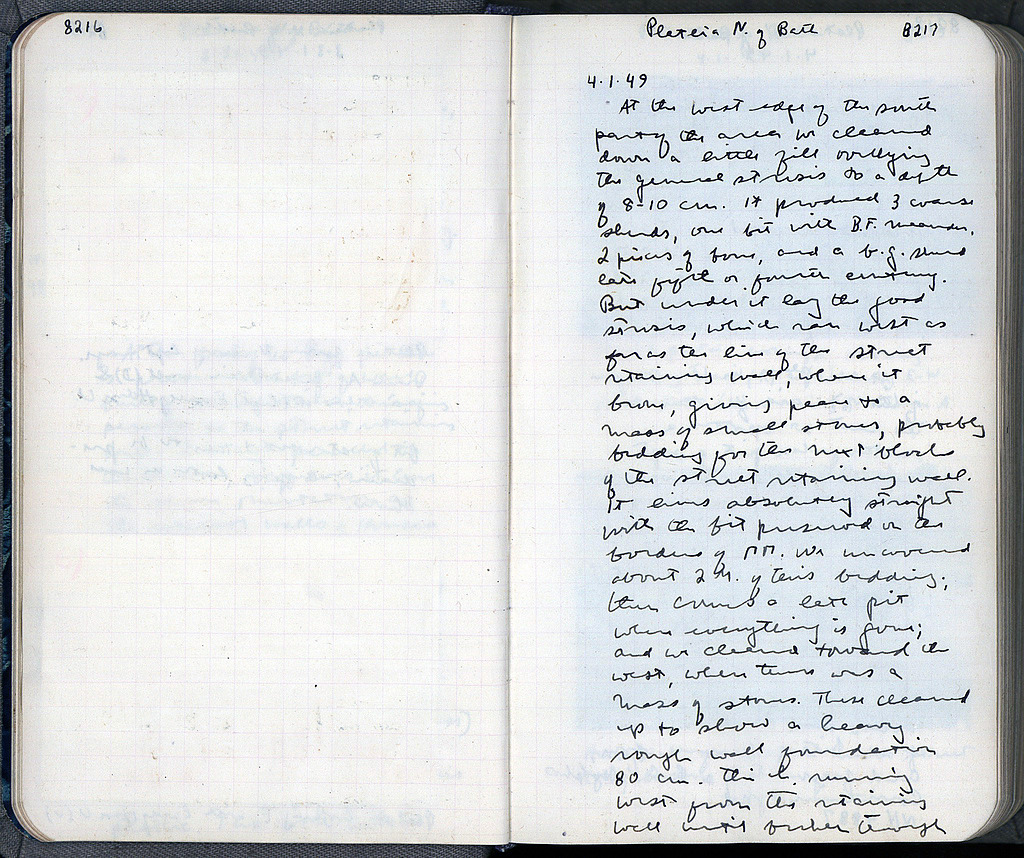 8216
Plateia N. of Bath 8217
4·1·49
At the west edge of the south
part of the area we cleaned
down a little fill overlying
the general strosis to a depth
of 8-10 cm. It produced 3 coarse
sherds, one bit with B.F. meander,
2 pieces of bone, and a b.g. sherd
late fifth or fourth century.
But under it lay the good
strosis, which ran west as
far as the line of the street
retaining wall, where it
broke, giving place to a
mass of small stones, probably
bedding for the next blocks
of the street retaining wall.
It lines absolutely straight
with the bit preserved on the
borders of ΠΠ. We uncovered
about 2 M. of this bedding;
then comes a late pit
where everything is gone;
and we cleaned toward the
west, where there was a
mass of stones. These cleaned
up to show a heavy
rough wall foundation
80 cm. thick, running
west from the retaining
wall until broken through